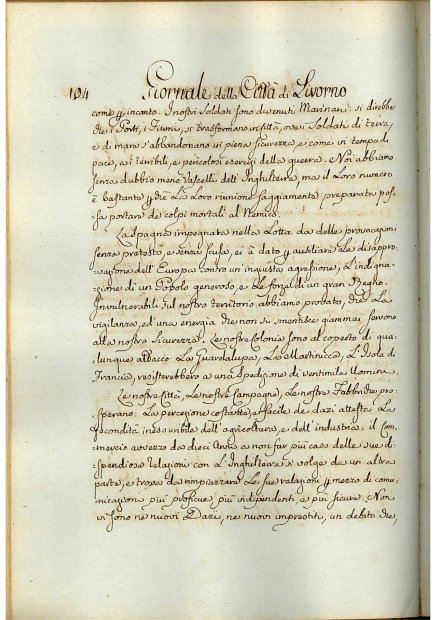 194 Giornale della Città di Livorno
come p incanto. I nostri Soldati sono divenuti Marinari: si direbbe
che i Porti, i Fiumi, si trasformano in Città, ove i Soldati di terra,
e di mare s'abbandonano in piena sicurezza, e come in tempo di
pace, ai terribili, e pericolosi esercizj della guerra. Noi abbiamo
senza dubbio meno Vascelli dell'Inghilterra, ma il Loro numero
è bastante p che La Loro riunione saggiamente preparata pos-
sa portare de colpi mortali al Nemico.
La Spagna impegnata nella Lotta da delle provocazioni
senza pretesto, e senza scusa, ci à dato p ausiliari La disappro-
vazione dell'Europa contro un'ingiusta agressione, L'indigna-
zione di un Popolo generoso, e Le forze di un gran Regno.
Invulnerabili sul nostro territorio abbiamo probato, che La
vigilanza, ed una energia che non si smentisce giammai servono
alla nostra sicurezza. Le nostre Colonie sono al coperto di qua-
lunque attacco. La Guardalupa, La Martinicca, L'Isole di
Francia, resisterebbero a una spedizione di ventimila Uomini.
Le nostre Città, Le nostre Campagne, Le nostre Fabbriche pro-
sperano: La percezione costante, e facile de dazi attesta La
fecondità inesauribile dell'agricoltura, e dell'industria: il Com-
mercio avvezzo da dieci Anni a non far più caso delle sue di-
spendiose relazioni con L'Inghilterra si volge da un altra
parte, e trova da rimpiazzare Le sue relazioni p mezzo di comu-
nicazioni più proficue, più indipendenti, e più sicure. Non
vi sono nè nuovi Dazi, nè nuovi imprestiti, un debito che,